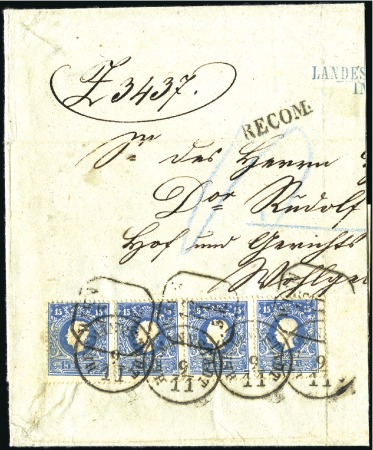 Z 3437.
LANDES
IN
RECOM:
Sr des Herrn
Dor Rudolf
Hof und Gerichts
Wohlge
15 15 15 15
9 9 9 9
11 11 11 11